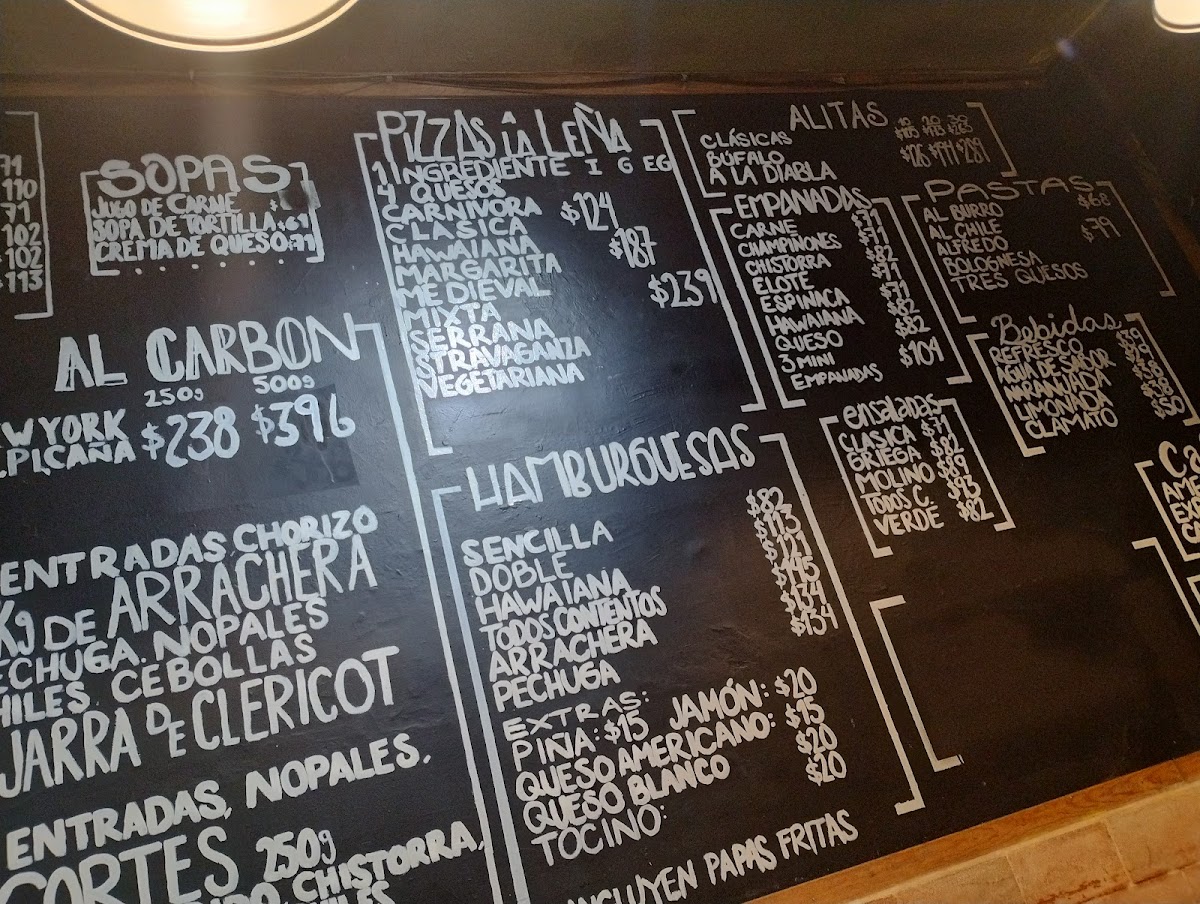 71
110
71
102
$102
$113
SOPAS
JUGO DE CARNE $
SOPA DE TORTILLA $69
CREMA DE QUESO $71
AL CARBON
250g 500g
EW YORK
PICAÑA $238 $396
ENTRADAS CHORIZO
Kg DE ARRACHERA
ECHUGA. NOPALES
HILES. CEBOLLAS
JARRA DE CLERICOT
ENTRADAS, NOPALES,
CORTES 250g
CHISTORRA,
PIZZAS A LA LEÑA
1 INGREDIENTE I G EG
4 QUESOS
CARNIVORA $124
CLASICA
HAWAIANA $187
MARGARITA
MEDIEVAL $239
MIXTA
SERRANA
STRAVAGANZA
VEGETARIANA
HAMBURGUESAS
SENCILLA $82
DOBLE $113
HAWAIANA $121
TODOS CONTENTOS $145
ARRACHERA $134
PECHUGA $134
EXTRAS:
PIÑA: $15 JAMÓN: $20
QUESO AMERICANO: $15
QUESO BLANCO $20
TOCINO: $20
INCLUYEN PAPAS FRITAS
ALITAS 10 20 30
CLÁSICAS
BÚFALO
A LA DIABLA
EMPANADAS
CARNE $71
CHAMPIÑONES $71
CHISTORRA $82
ELOTE $71
ESPINACA $71
HAWAIANA $82
QUESO $82
3 MINI
EMPANADAS $101
PASTAS
AL BURRO $68
AL CHILE
ALFREDO $79
BOLOGNESA
TRES QUESOS
Bebidas
REFRESCO
AGUA DE SABOR
NARANJADA
LIMONADA
CLAMATO $50
ensaladas
CLASICA $71
GRIEGA $82
MOLINO $89
TODOS C. $93
VERDE $82